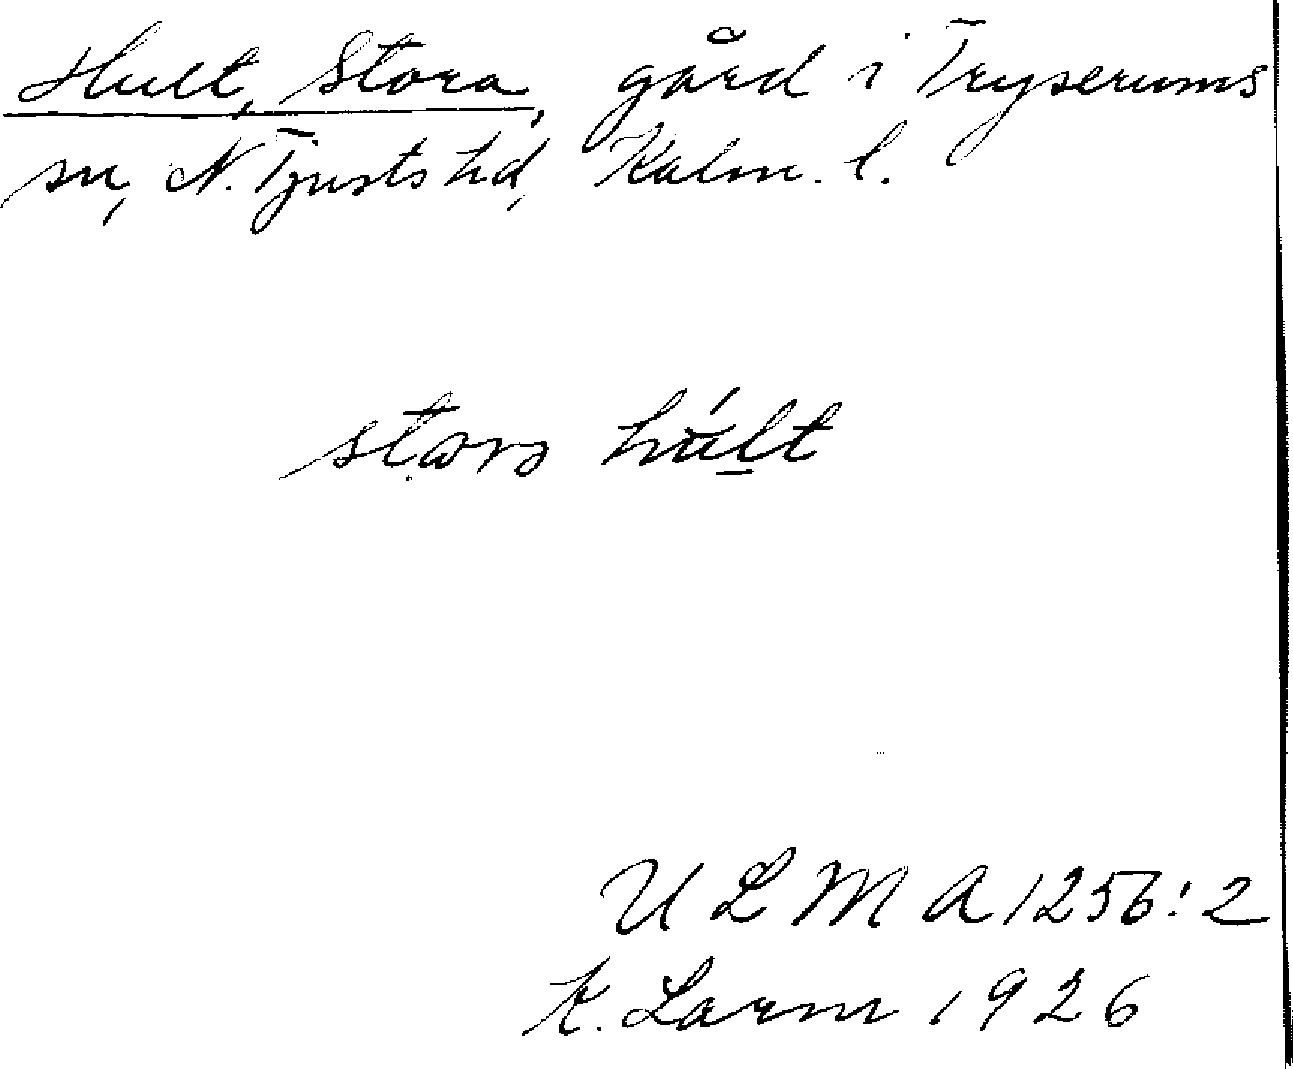 Hult, Stora, gård i Tryserums
sn, N. Tjusts hd, Kalm. l.
húlt
ULMA 1256:2
K. Larm 1926